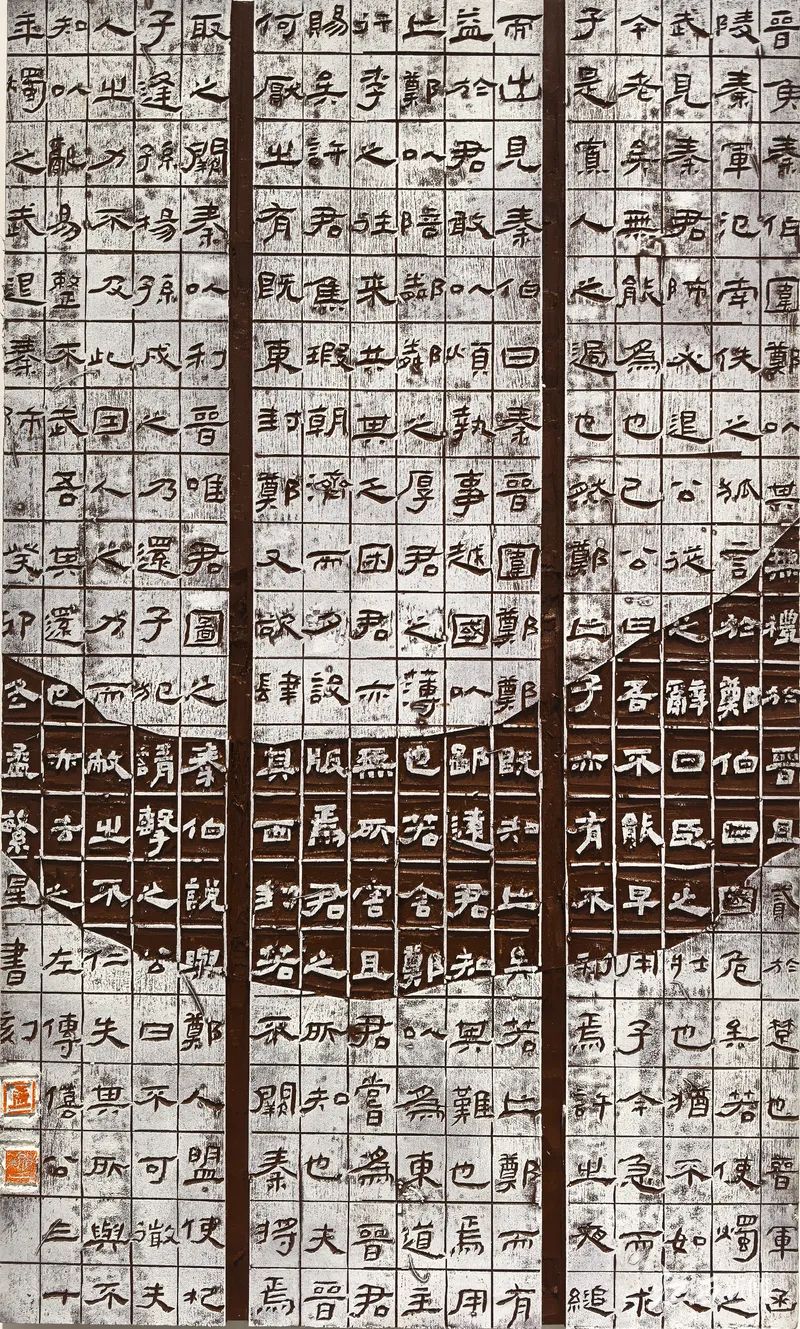 晉侯秦伯圍鄭以其無禮於晉且貳於楚也晉軍函
陵秦軍氾南佚之狐言於鄭伯曰國危矣若使燭之
武見秦君師必退公從之辭曰臣之壯也猶不如人
今老矣無能為也已公曰吾不能早用子今急而求
子是寡人之過也然鄭亡子亦有不利焉許之夜縋
而出見秦伯曰秦晉圍鄭鄭既知亡矣若亡鄭而有
益於君敢以煩執事越國以鄙遠君知其難也焉用
亡鄭以陪鄰鄰之厚君之薄也若舍鄭以為東道主
行李之往來共其乏困君亦無所害且君嘗為晉君
賜矣許君焦瑕朝濟而夕設版焉君之所知也夫晉
何厭之有既東封鄭又欲肆其西封若不闕秦將焉
取之闕秦以利晉唯君圖之秦伯說與鄭人盟使杞
子逢孫揚孫戍之乃還子犯請擊之公曰不可微夫
人之力不及此因人之力而敝之不仁失其所與不
知以亂易整不武吾其還也亦去之左傳僖公三十
年燭之武退秦師 癸卯冬孟繁星書刻